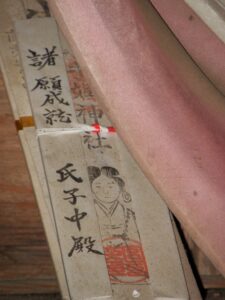 神社
諸願成就
氏子中殿